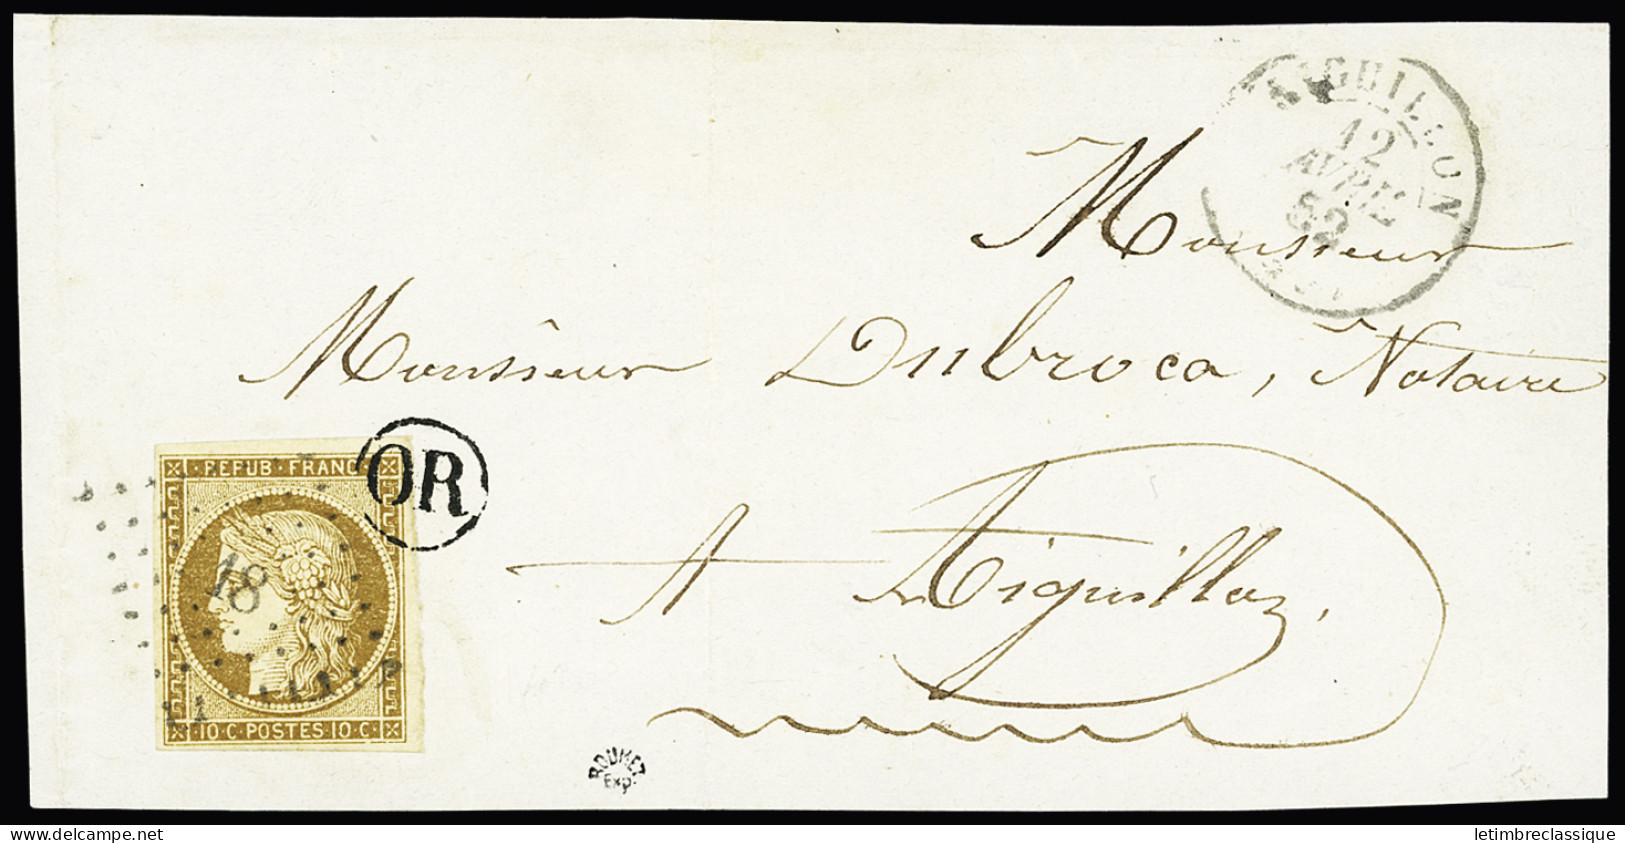 AIGUILLON
12
AVRIL
52
Monsieur
Monsieur Dubroca, Notaire
OR
REPUB FRANC
18
A Aiguillon,
10·C·POSTES10·C·
ROUMET
Exp.
www.delcampe.net
letimbreclassique